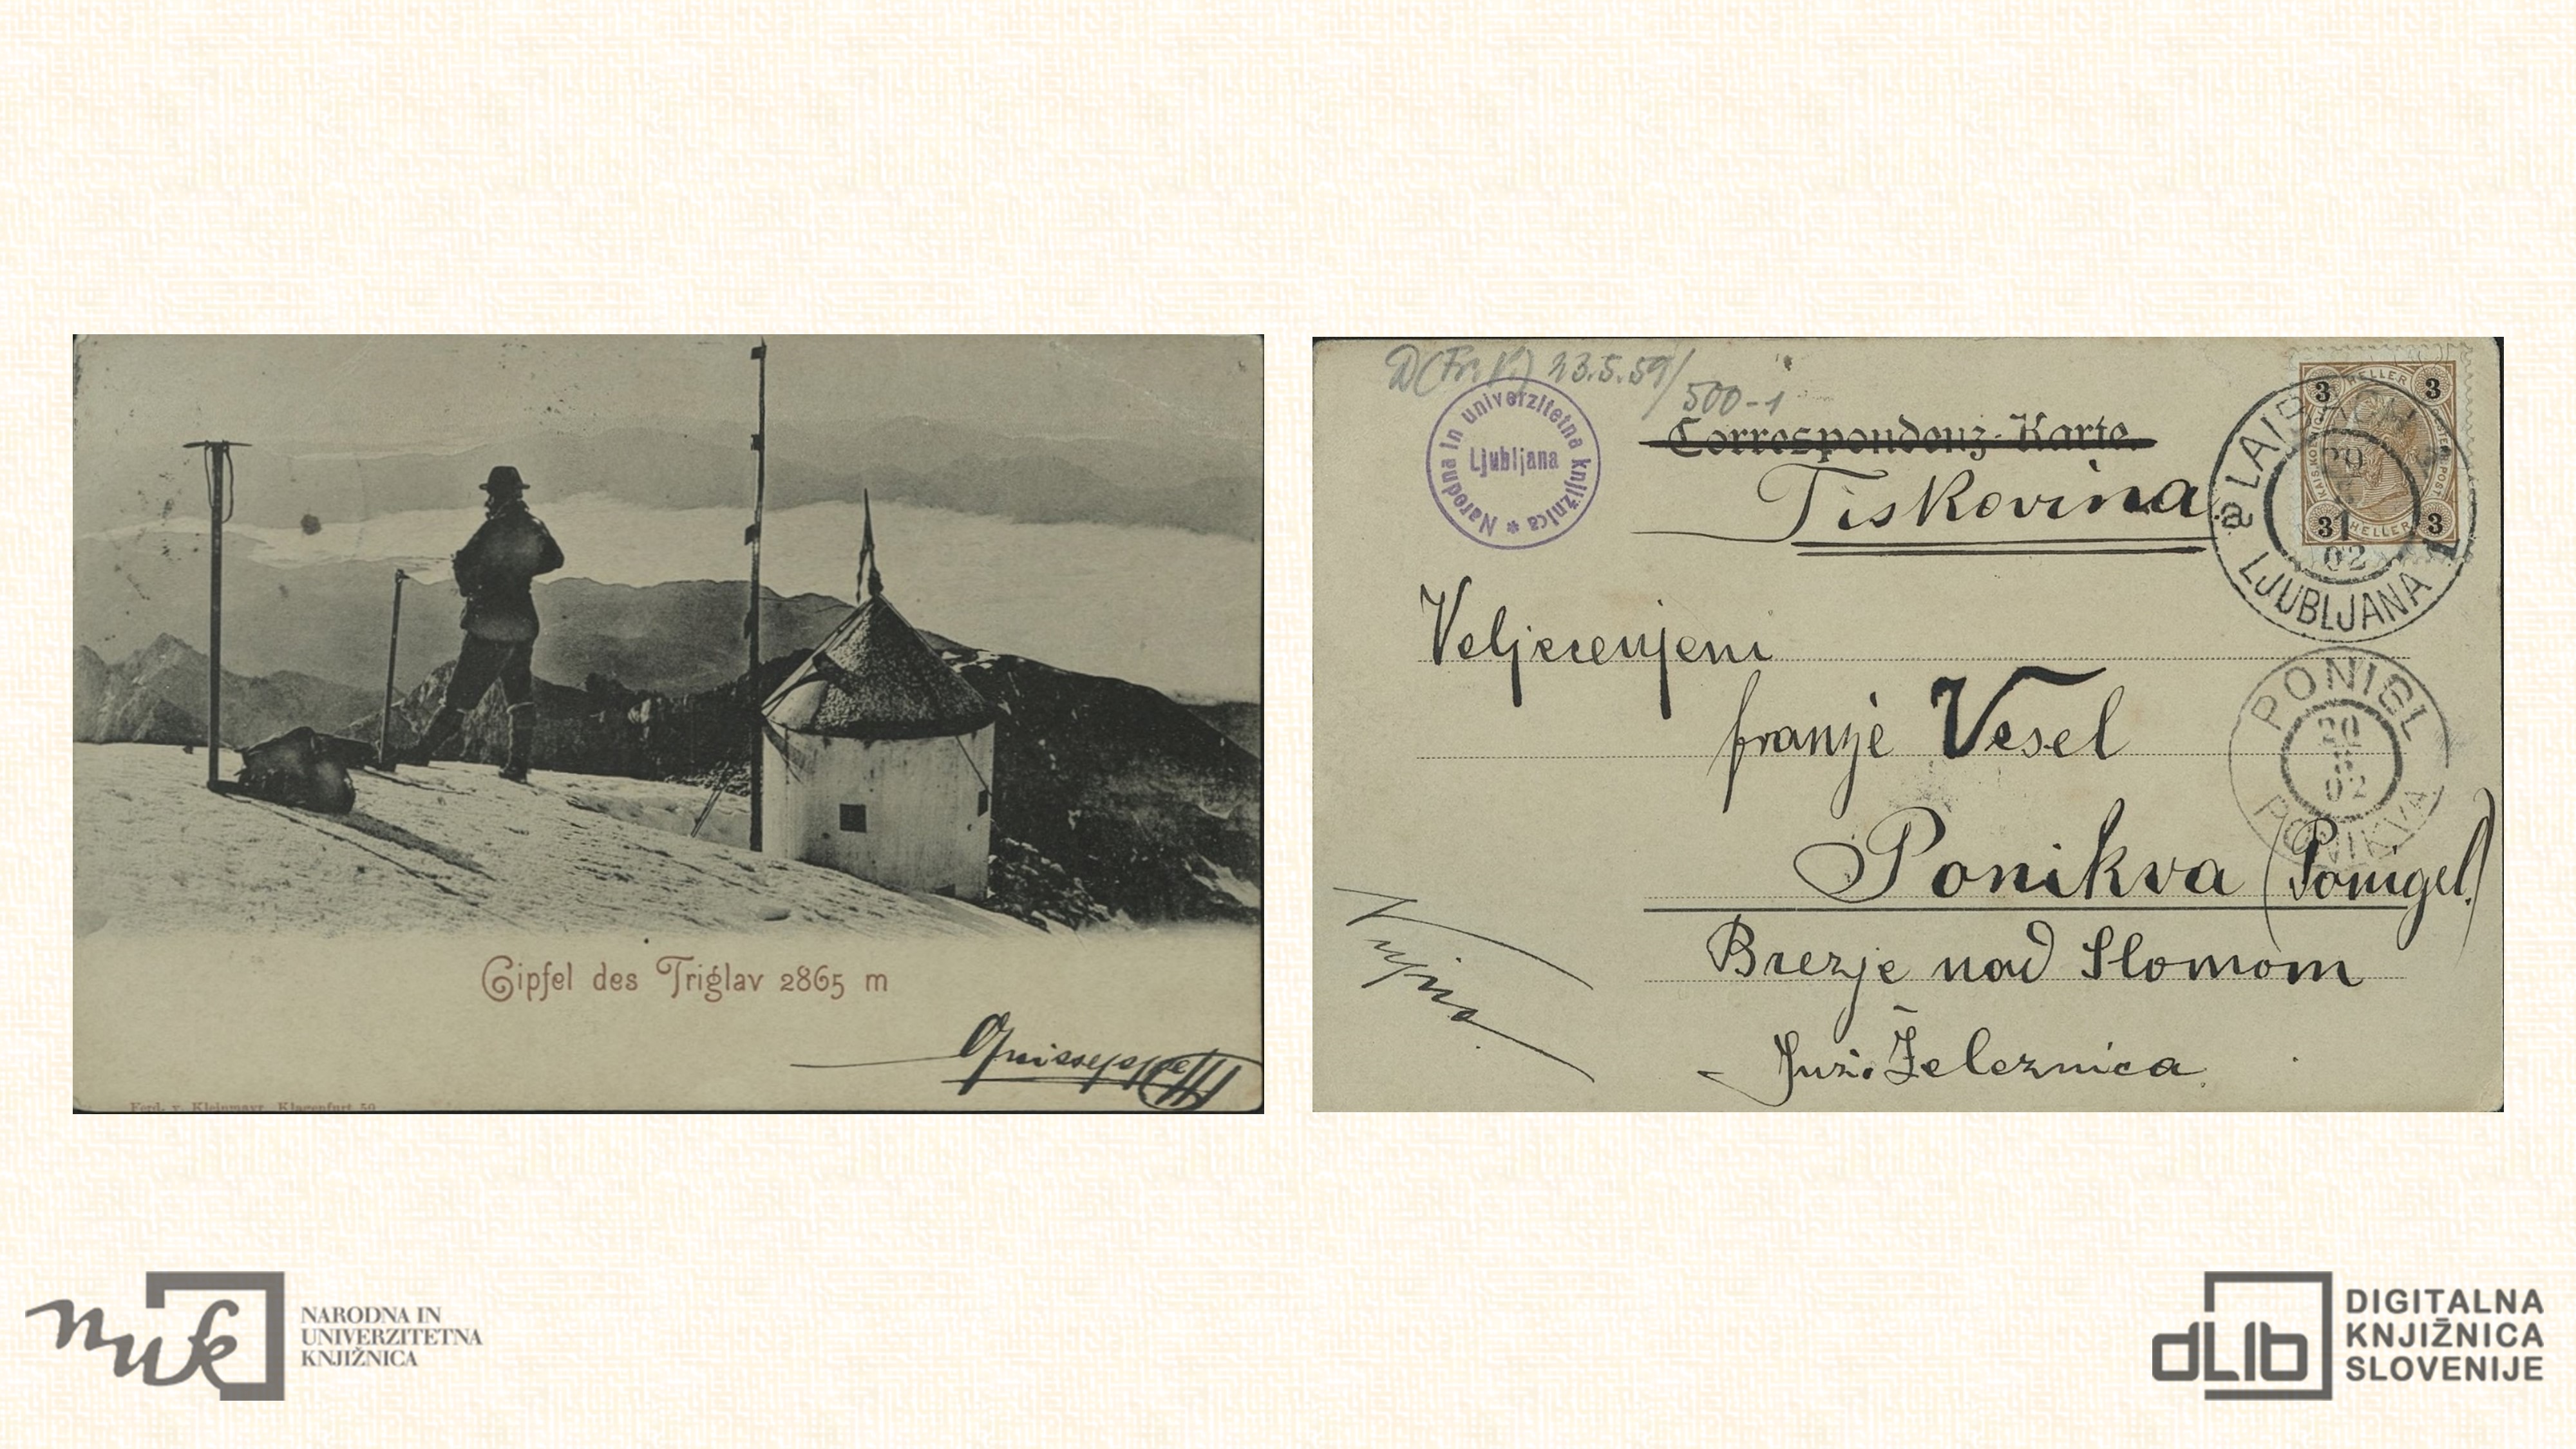 Gipfel des Triglav 2865 m
Ferd. v. Kleinmayr, Klagenfurt 50
D(Fr.V.) 23.5.59/
500-1
Narodna in univerzitetna knjižnica *
Ljubljana
Correspondenz-Karte.
Tiskovina
3 HELLER 3
3 HELLER 3
LAIBACH
LJUBLJANA
1
02
a
Veljecenjeni
franje Vesel
PONIGL
20
02
PONIKVA
Ponikva (Ponigel)
Brezje nad Slomom
Juž. Železnica
Nujno
nuk
NARODNA IN
UNIVERZITETNA
KNJIŽNICA
dLib
DIGITALNA
KNJIŽNICA
SLOVENIJE